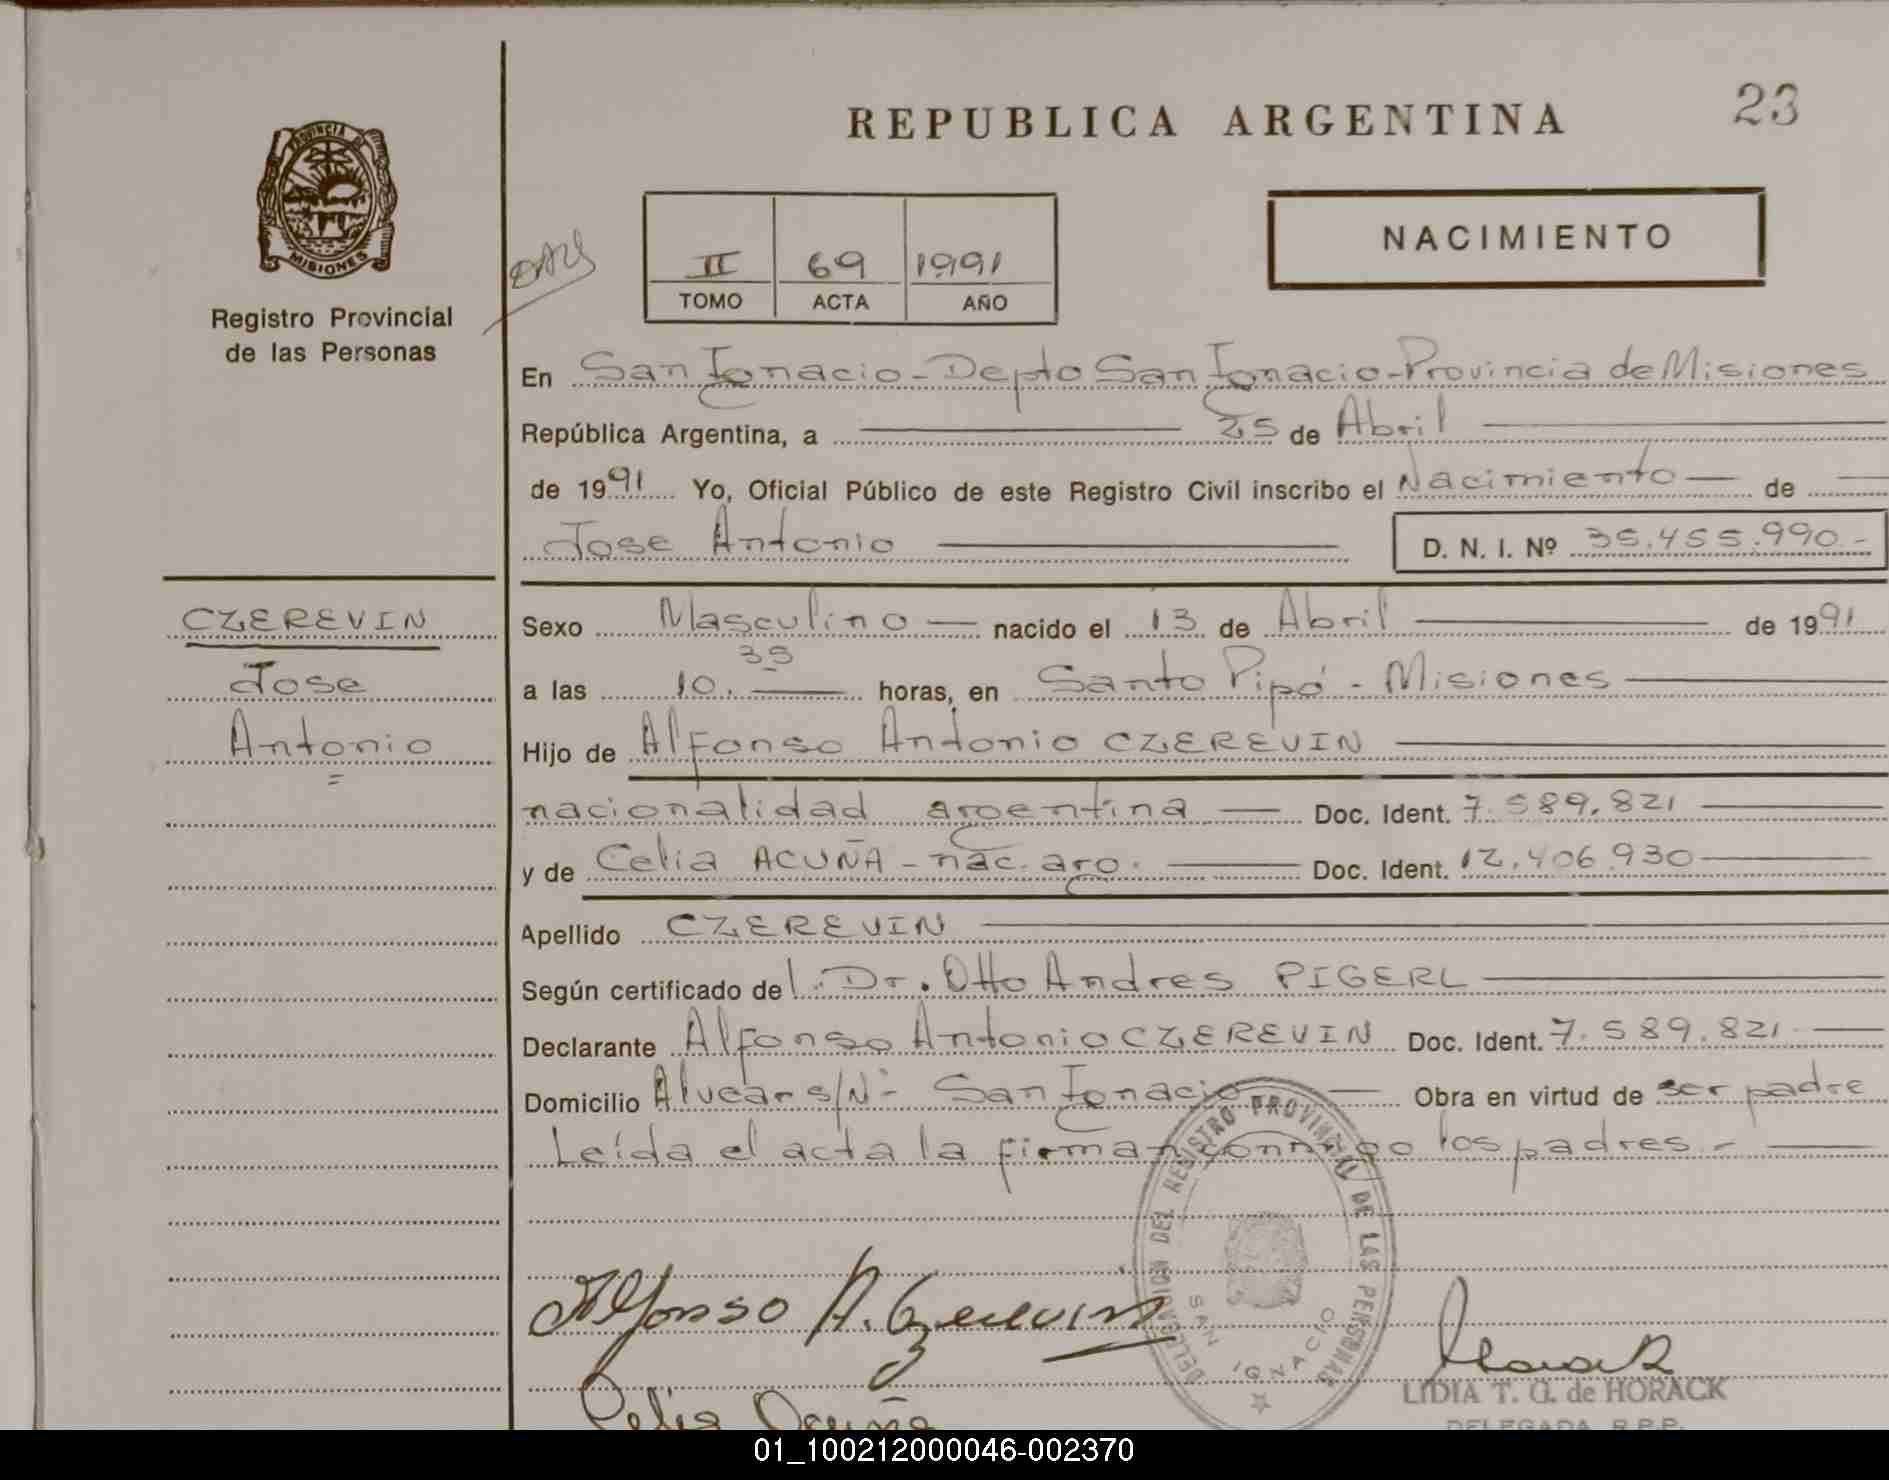 REPUBLICA ARGENTINA
23
PROVINCIA DE
MISIONES
Registro Provincial
de las Personas
II 69 1991
TOMO ACTA AÑO
NACIMIENTO
En San Ignacio - Depto San Ignacio - Provincia de Misiones
República Argentina, a 25 de Abril
de 1991 Yo, Oficial Público de este Registro Civil inscribo el Nacimiento de
Jose Antonio D. N. I. Nº 35.455.990.-
CZEREVIN
Jose
Antonio
Sexo Masculino nacido el 13 de Abril de 1991
a las 10.35 horas, en Santo Pipó - Misiones
Hijo de Alfonso Antonio CZEREVIN
nacionalidad argentina Doc. Ident. 7.589.821
y de Celia ACUÑA - nac. arg. Doc. Ident. 12.406.930
Apellido CZEREVIN
Según certificado del. Dr. Otto Andres PIGERL
Declarante Alfonso Antonio CZEREVIN Doc. Ident. 7.589.821
Domicilio Alvear s/Nº - San Ignacio Obra en virtud de ser padre
Leída el acta la firman conmigo los padres.-
DELEGACION DEL REGISTRO PROVINCIAL DE LAS PERSONAS
SAN IGNACIO
Alfonso A. Czerevin
Celia Acuña
Horack
LIDIA T. G. de HORACK
DELEGADA R.P.P.
01_100212000046-002370